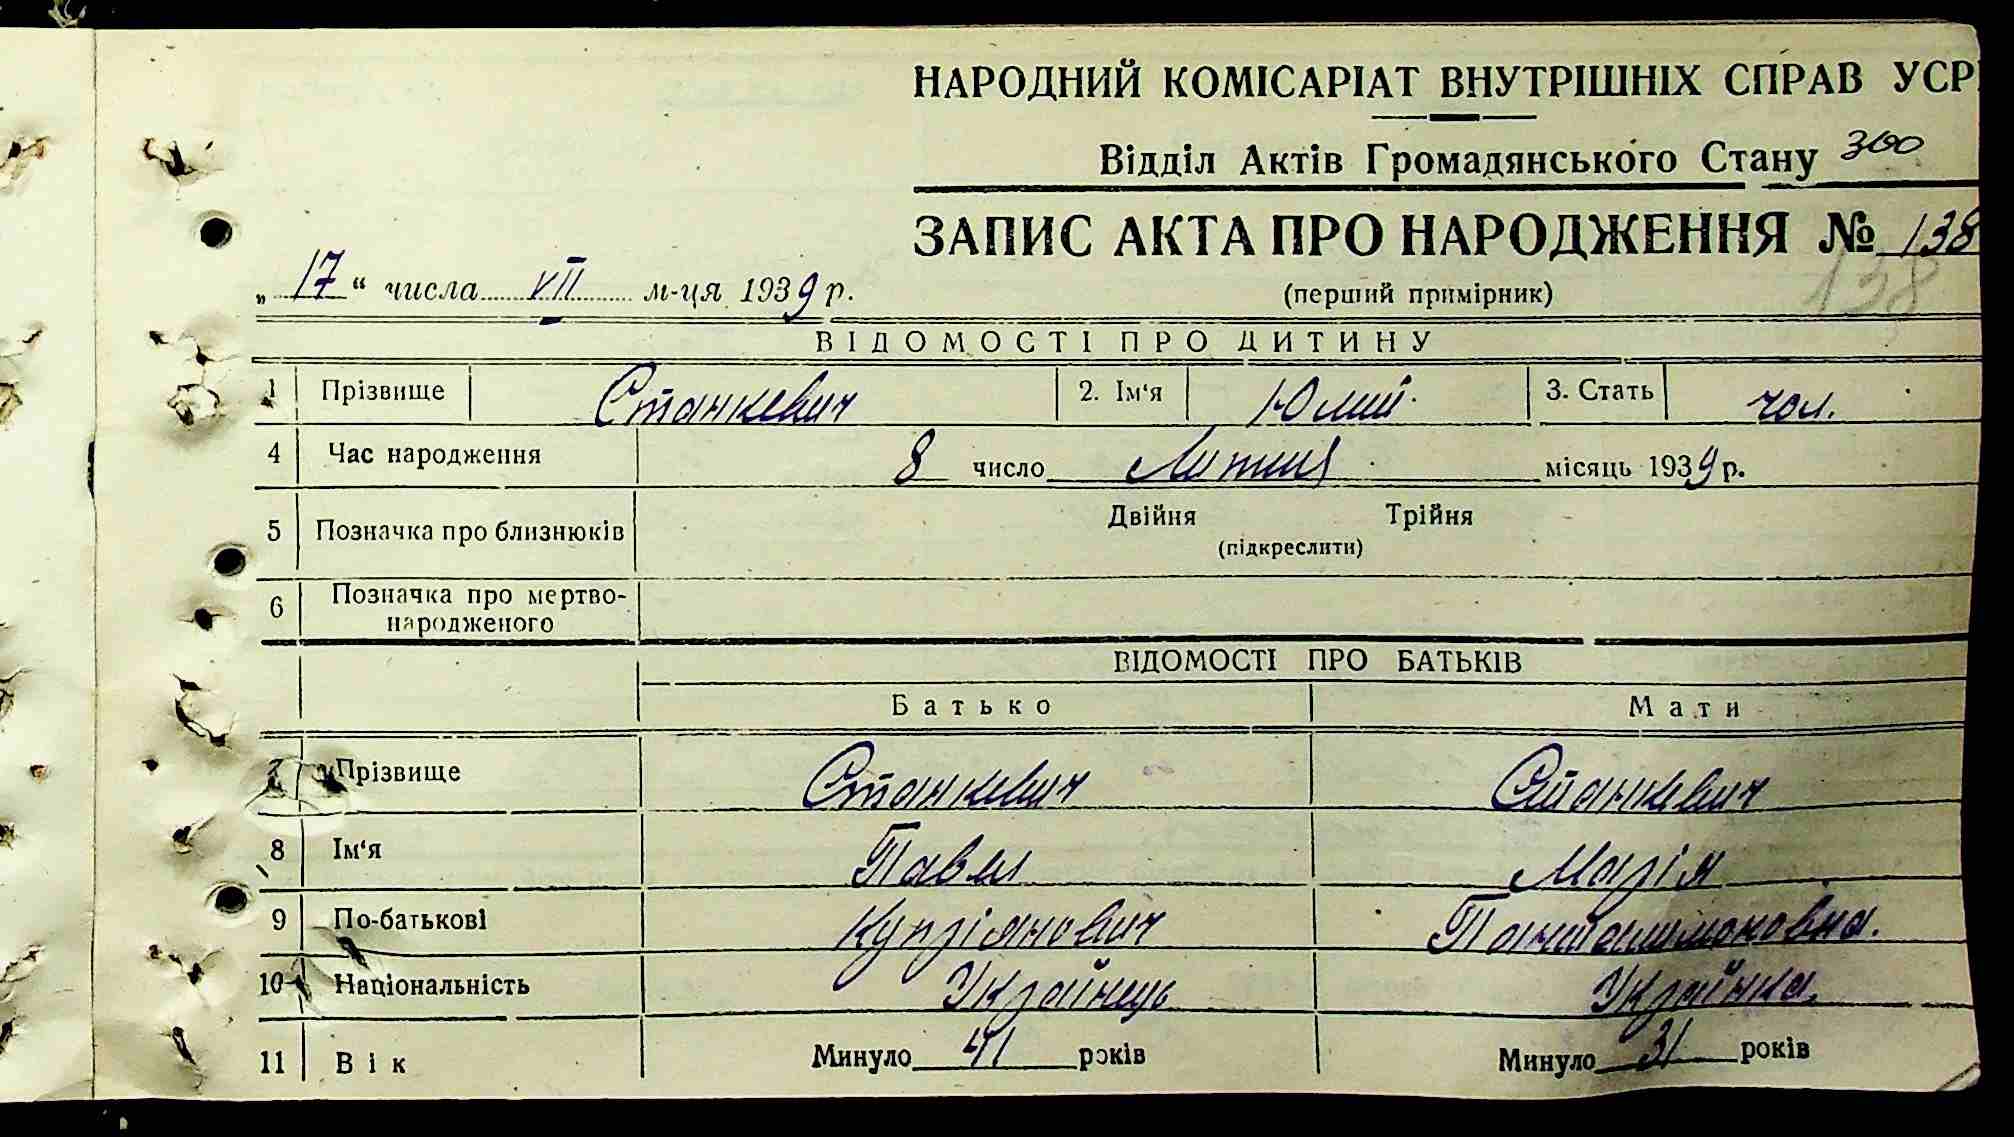 НАРОДНИЙ КОМІСАРІАТ ВНУТРІШНІХ СПРАВ УСР
Відділ Актів Громадянського Стану 300
ЗАПИС АКТА ПРО НАРОДЖЕННЯ № 138
„17“ числа VII м-ця 1939 р.
(перший примірник) 138
ВІДОМОСТІ ПРО ДИТИНУ
1 Прізвище Станкевич 2. Ім‘я Юлий 3. Стать чол.
4 Час народження 8 число Липня місяць 1939 р.
5 Позначка про близнюків Двійня Трійня
(підкреслити)
6 Позначка про мертво-
народженого
ВІДОМОСТІ ПРО БАТЬКІВ
Батько Мати
7 Прізвище Станкевич Станкевич
8 Ім‘я Павел Марія
9 По-батькові Купріянович Пантелимоновна.
10 Національність Українець Українка.
11 Вік Минуло 41 років Минуло 31 років